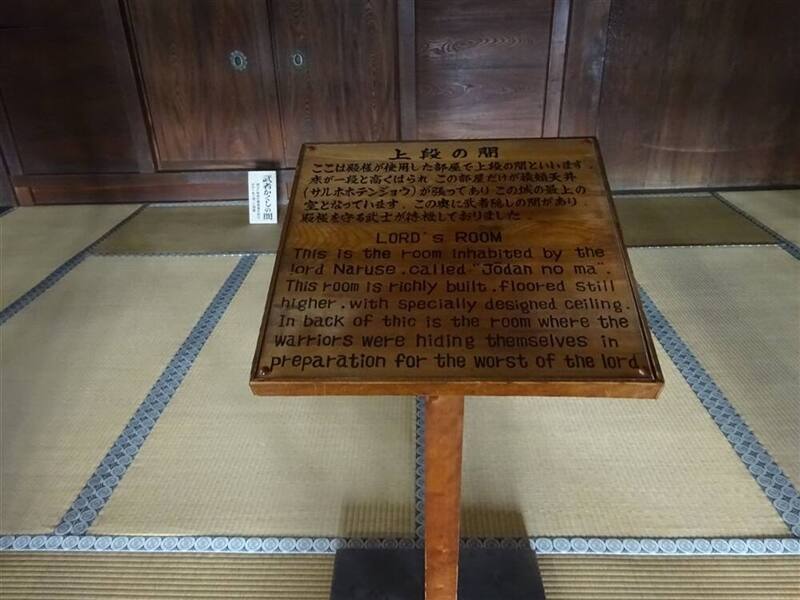 上段の間
ここは殿様が使用した部屋で上段の間といいます.
床が一段と高くはられ この部屋だけが猿頬天井
(サルホホテンジョウ)が張ってあり この城の最上の
室となっています. この奥に武者隠しの間があり
殿様を守る武士が待機しておりました.
LORD's ROOM
This is the room inhabited by the
lord Naruse.called "Jōdan no ma".
This room is richly built.floored still
higher.with specially designed ceiling.
In back of thic is the room where the
warriors were hiding themselves in
preparation for the worst of the lord
武者かくしの間